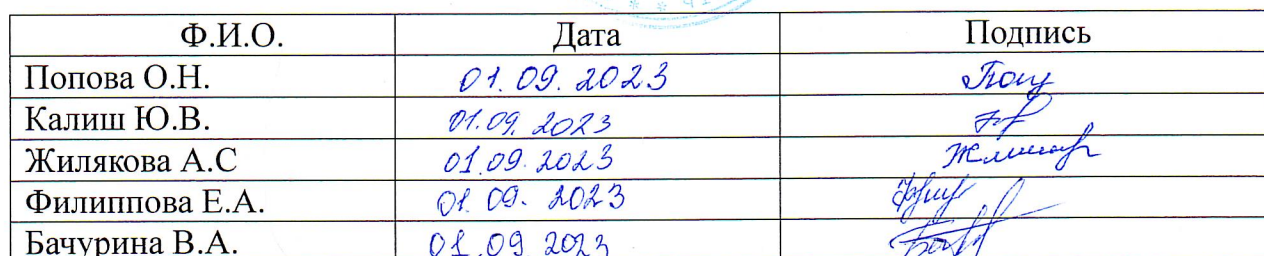 Ф.И.О. Дата Подпись
Попова О.Н. 01.09.2023
Калиш Ю.В. 01.09.2023
Жилякова А.С 01.09.2023
Филиппова Е.А. 01.09.2023
Бачурина В.А. 01.09 2023